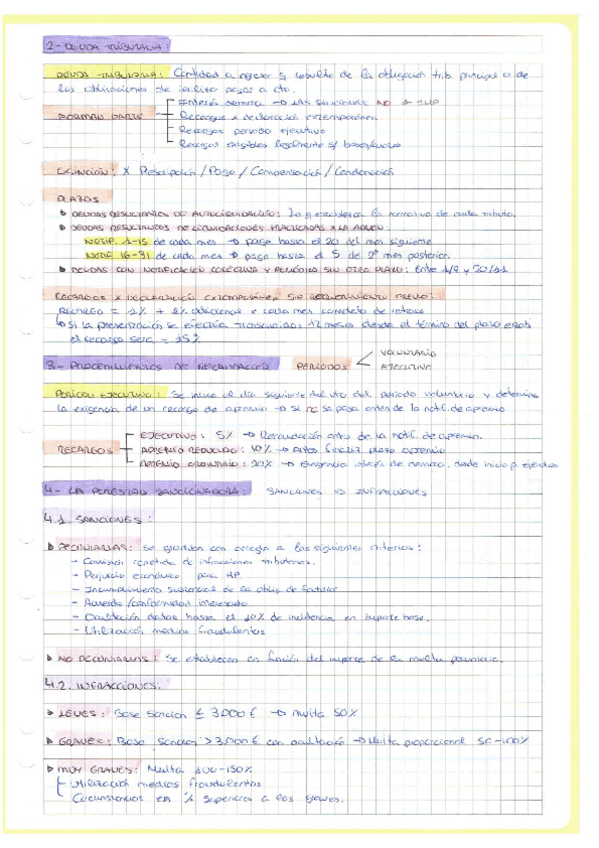 2- DEUDA TRIBUTARIA:
DEUDA TRIBUTARIA: Cantidad a ingresar q resulte de la obligación trib. principal o de
las obligaciones de realizar pagos a cta.
FORMAN PARTE
Interés demora → LAS SANCIONES NO
Recargos x declaración extemporánea
Recargos periodo ejecutivo
Recargos exigibles legalmente s/ bases/cuotas
EXTINCIÓN: x Prescripción / Pago / Compensación / Condonación
PLAZOS
DEUDAS RESULTANTES DE AUTOLIQUIDACIÓN: Lo q establezca la normativa de cada tributo.
DEUDAS RESULTANTES DE LIQUIDACIONES PRACTICADAS X LA ADMON:
NOTIF. 1-15 de cada mes → pago hasta el 20 del mes siguiente
NOTIF 16-31 de cada mes → pago hasta el 5 de 2º mes posterior.
DEUDAS CON NOTIFICACIÓN COLECTIVA y PERIÓDICA SIN OTRO PLAZO: Entre 1/9 y 20/11
RECARGOS X DECLARACIÓN EXTEMPORÁNEA SIN REQUERIMIENTO PREVIO:
RECARGO = 1% + 1% adicional x cada mes completo de retraso
Si la presentación se efectúa transcurridos 12 meses desde el término del plazo establ.
el recargo será = 15%
3- PROCEDIMIENTOS DE RECAUDACIÓN PERIODOS
VOLUNTARIO
EJECUTIVO
PERIODO EJECUTIVO: Se inicia el día siguiente del vto del periodo voluntario y determina
la exigencia de un recargo de apremio → si no se paga antes de la notif. de apremio
RECARGOS
EJECUTIVO: 5% → Recaudación antes de la notif. de apremio.
APREMIO REDUCIDO: 10% → Antes finalizar plazo apremio
APREMIO ORDINARIO: 20% → Exigencia interés de demora desde inicio p. ejecutivo
4- LA POTESTAD SANCIONADORA: SANCIONES VS INFRACCIONES
4.1. SANCIONES:
PECUNIARIAS: Se gradúan con arreglo a los siguientes criterios:
- Comisión repetida de infracciones tributarias.
- Perjuicio económico para HP.
- Incumplimiento sustancial de la oblig. de facturar
- Acuerdo / conformidad interesado
- Ocultación datos hasta el 10% de incidencia en importe base.
- Utilización medios fraudulentos
NO PECUNIARIAS: Se establecen en función del importe de la multa pecuniaria.
4.2. INFRACCIONES:
LEVES: Base Sanción ≤ 3000 € → Multa 50%
GRAVES: Base Sanción > 3000 € con ocultación → Multa proporcional 50-100%
MUY GRAVES: Multa 100-150%
Utilización medios fraudulentos
Circunstancias en % superiores a las graves.